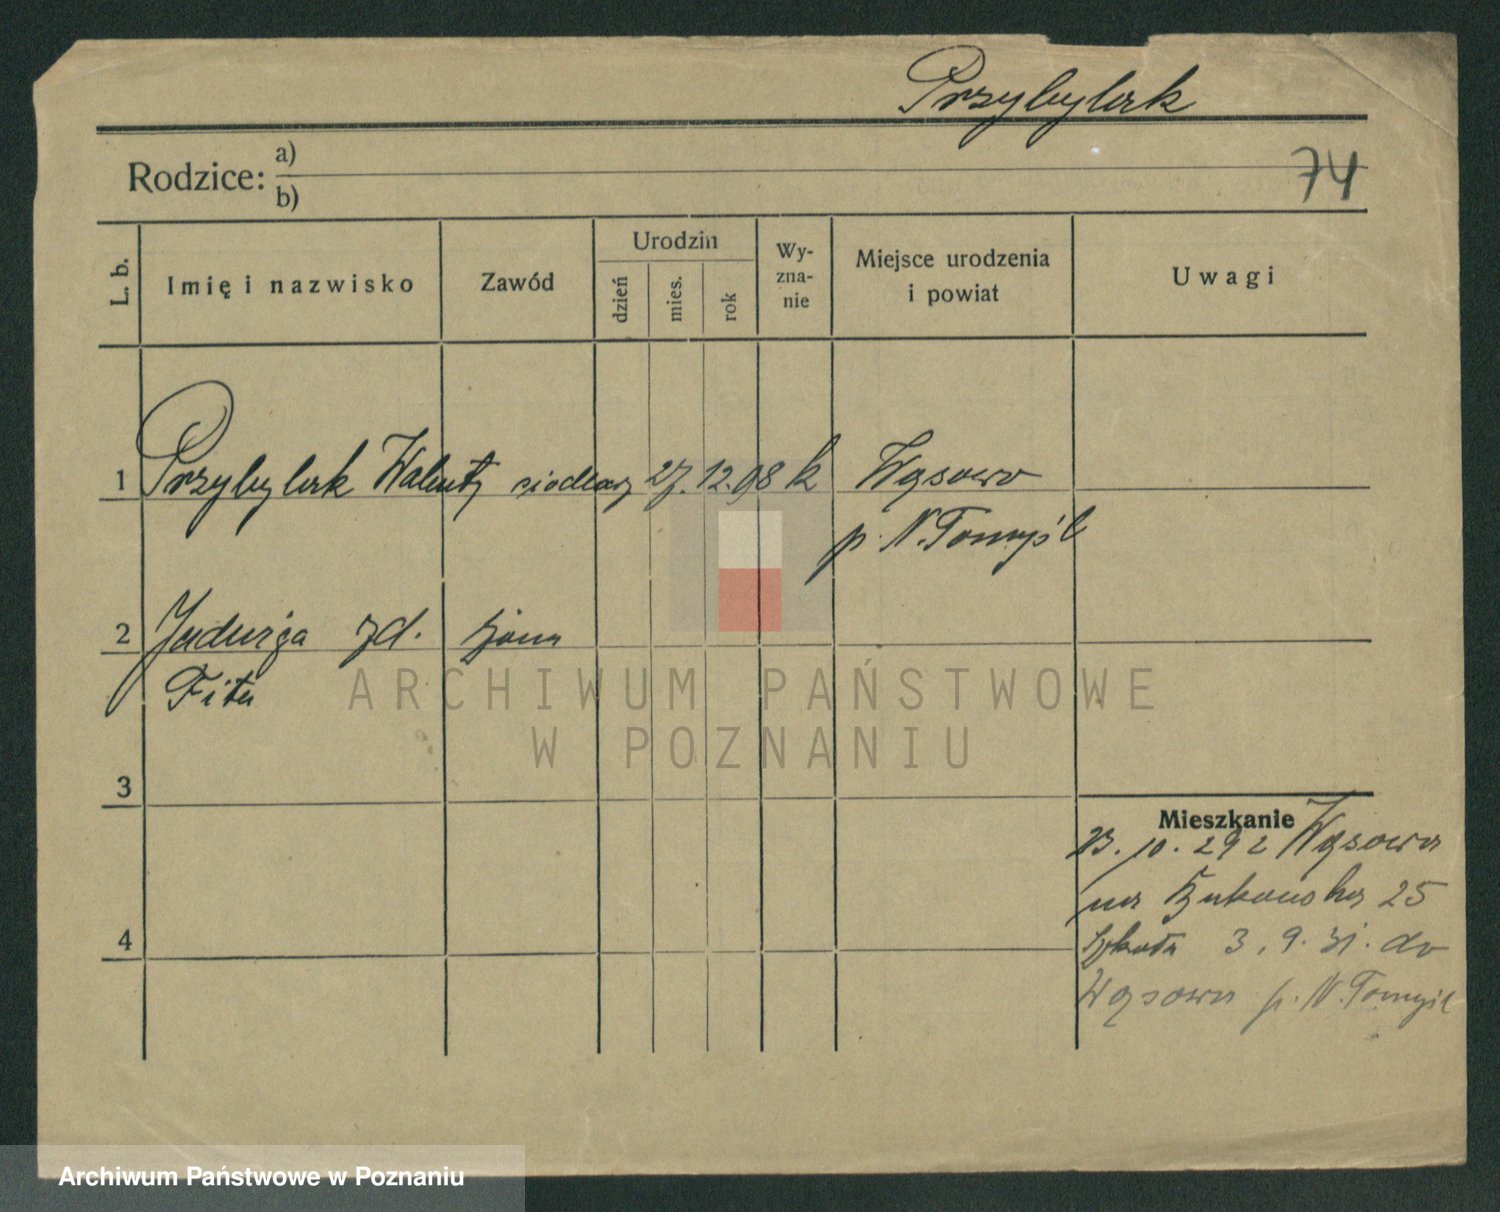 Przybylak
Rodzice: a)
b)
74
L. b.
Imię i nazwisko
Zawód
Urodzin
dzień
mies.
rok
Wy-
zna-
nie
Miejsce urodzenia
i powiat
Uwagi
1 Przybylak Walenty siodlarz 27. 12. 98 k Wąsowo
p. N. Tomyśl
2 Jadwiga zd. żona
Fita
3
4
Mieszkanie
23. 10. 29 z Wąsowa
na 25
3. 9. 31. do
Wąsowa p. N. Tomyśl
ARCHIWUM PAŃSTWOWE
W POZNANIU
Archiwum Państwowe w Poznaniu